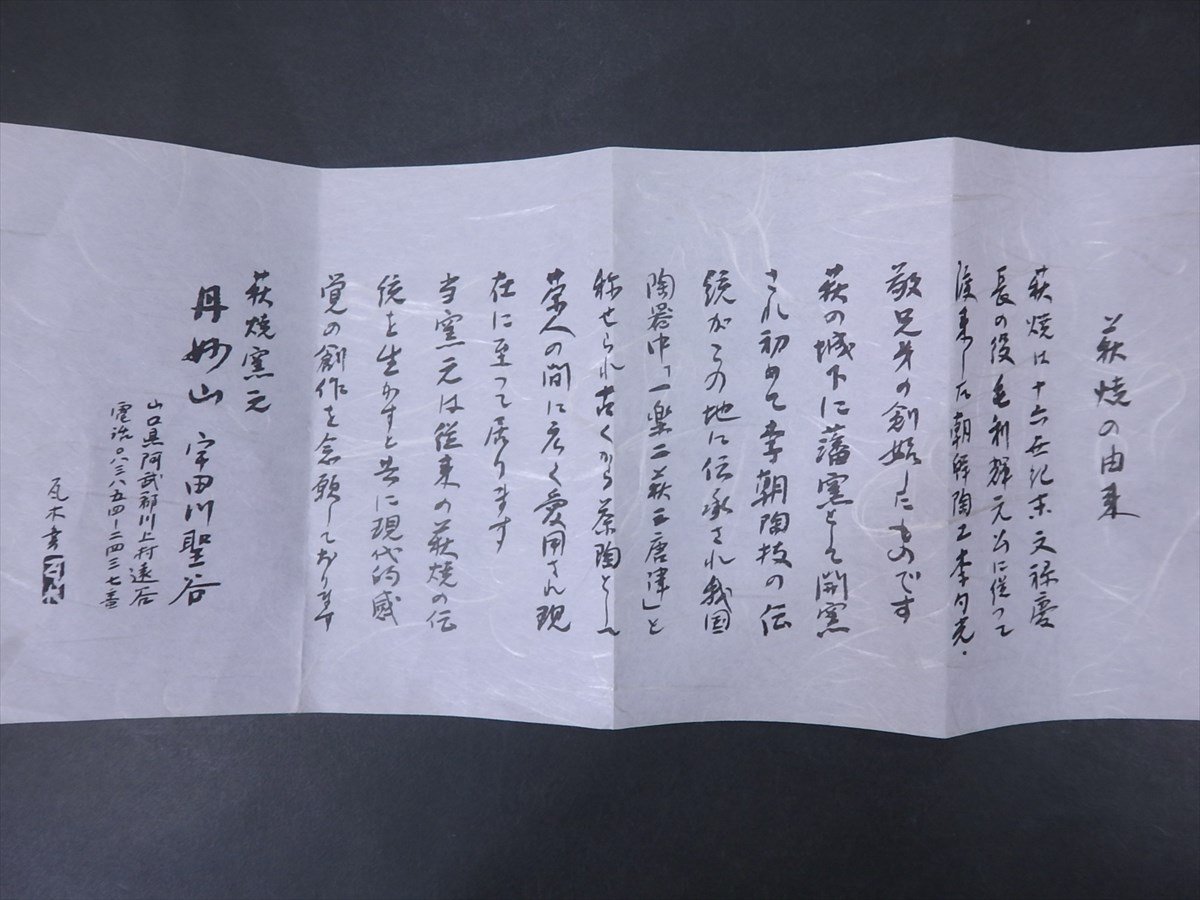 萩焼の由来
萩焼は十六世紀末文禄慶
長の役毛利輝元公に従って
渡来した朝鮮陶工李勺光・
敬兄弟の創始したものです
萩の城下に藩窯として開窯
され初めて李朝陶技の伝
統がこの地に伝承され我国
陶器中「一楽二萩三唐津」と
称せられ古くから茶陶とし
茶人の間に広く愛用され現
在に至って居ります
当窯元は従来の萩焼の伝
統を生かすと共に現代的感
覚の創作を念願しております
萩焼窯元
丹妙山 宇田川聖谷
山口県阿武郡川上村遠谷
電話〇八三八五四-二四三七番